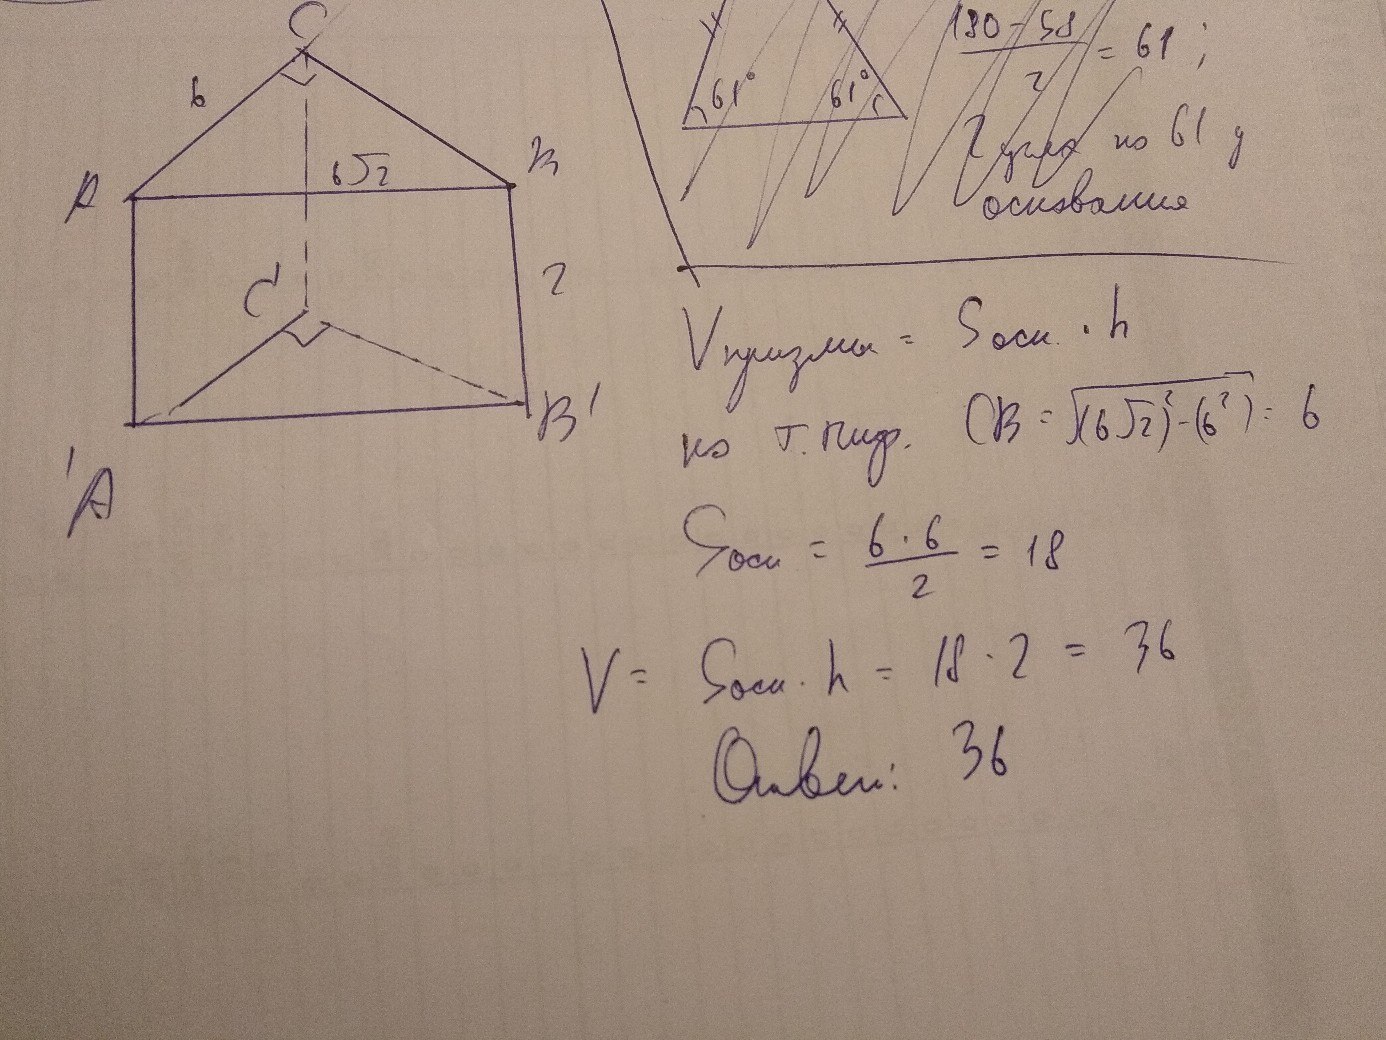 C
6
6√2
A
B
C'
2
'A
B'
61°
61°
180 - 58
2
= 61 ;
2 угла по 61 у
основания
Vпризмы = Sосн. · h
по т. Пиф. CB = √((6√2)² - (6²)) = 6
Sосн = 6 · 6
2
= 18
V = Sосн · h = 18 · 2 = 36
Ответ: 36